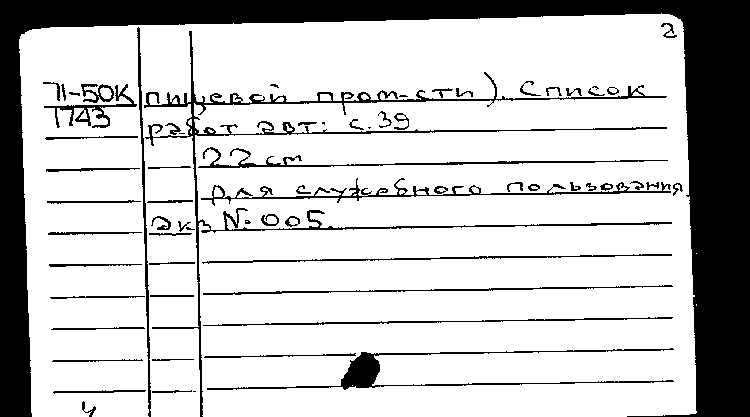 2
71-50К пищевой пром-сти). Список
1743 работ авт: с.39.
22 см
Для служебного пользования.
Экз №005.
ч